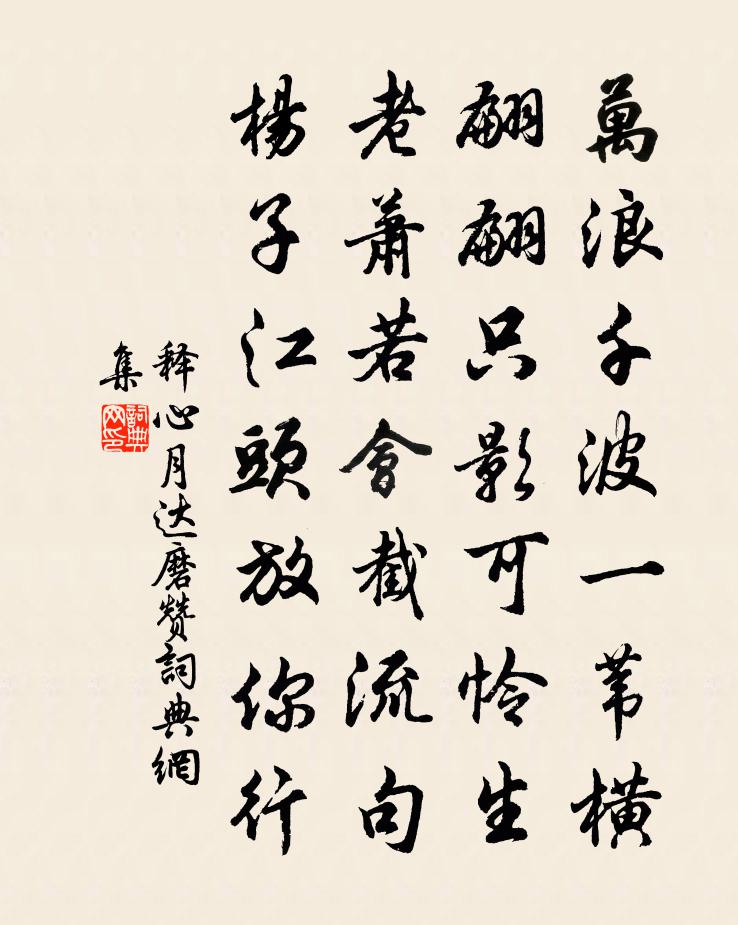 萬浪千波一苇橫
翩翩只影可怜生
老蕭若會截流句
楊子江頭放你行
释心月达磨赞詞典網
集
詞典网印